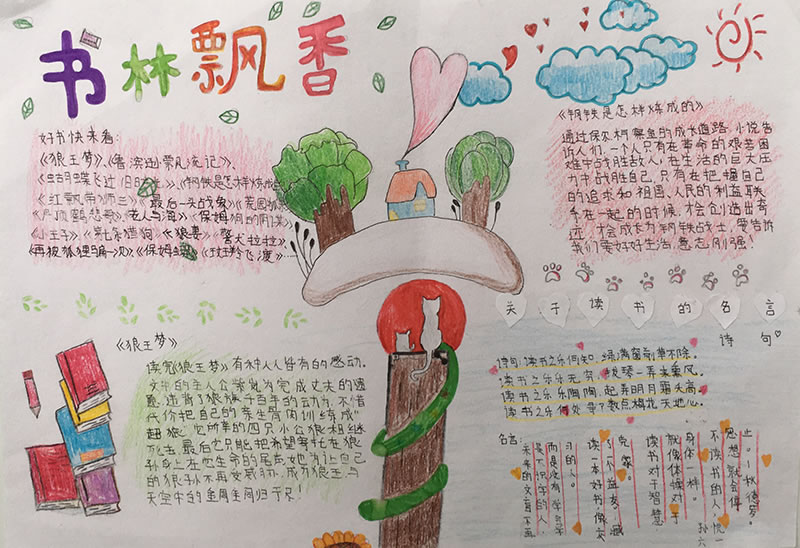 书林飘香
好书快来看:
《狼王梦》、《鲁滨逊漂流记》、
《蝴蝶飞过旧时光》、《钢铁是怎样炼成
《红飘带狮王》 最后一头战象》《
《丹顶鹤悲歌》老人与海》《保姆
《小王子》《第七条猎狗》《狼妻》 警犬拉拉》
《再被狐狸骗一次》《保姆蟒》
《钢铁是怎样炼成的》
通过保尔·柯察金的成长道路,小说告
诉人们,一个人只有在革命的艰苦困
难中战胜敌人,在生活的巨大压
力中战胜自己,只有在把握自己
的追求和祖国、人民的利益联
系在一起的时候,才会创造出奇
迹,才会成长为钢铁战士,要告诉
我们要好好生活,意志刚强!
关于读书的名言
诗句
《狼王梦》
读完《狼王梦》有种人人皆有的感动。
文中的主人公紫岚为完成丈夫的遗
愿,违背了狼族千百年的动力,不惜
代价把自己的亲生骨肉训练成"
超狼",它所率的四只小公狼相继
死去,最后它只能把希望寄托在狼
孙身上,在它生命的尾声,她为让自己
的狼孙不再受威胁,成为狼王,与
天空中的金雕同归于尽!
诗句:读书之乐何如,绿满窗前草不除。
读书之乐乐无穷,拨琴一弄来薰风。
读书之乐乐陶陶,起弄明月霜天高。
读书之乐何处寻?数点梅花天地心。
名言:
读书对于智慧
就像体操对于
身体一样。
不读书的人,
思想就会停
止。
读一本好书,像交
了一个益友。
未来的文盲不再
是不识字的人,
而是没有学会学
习的人。